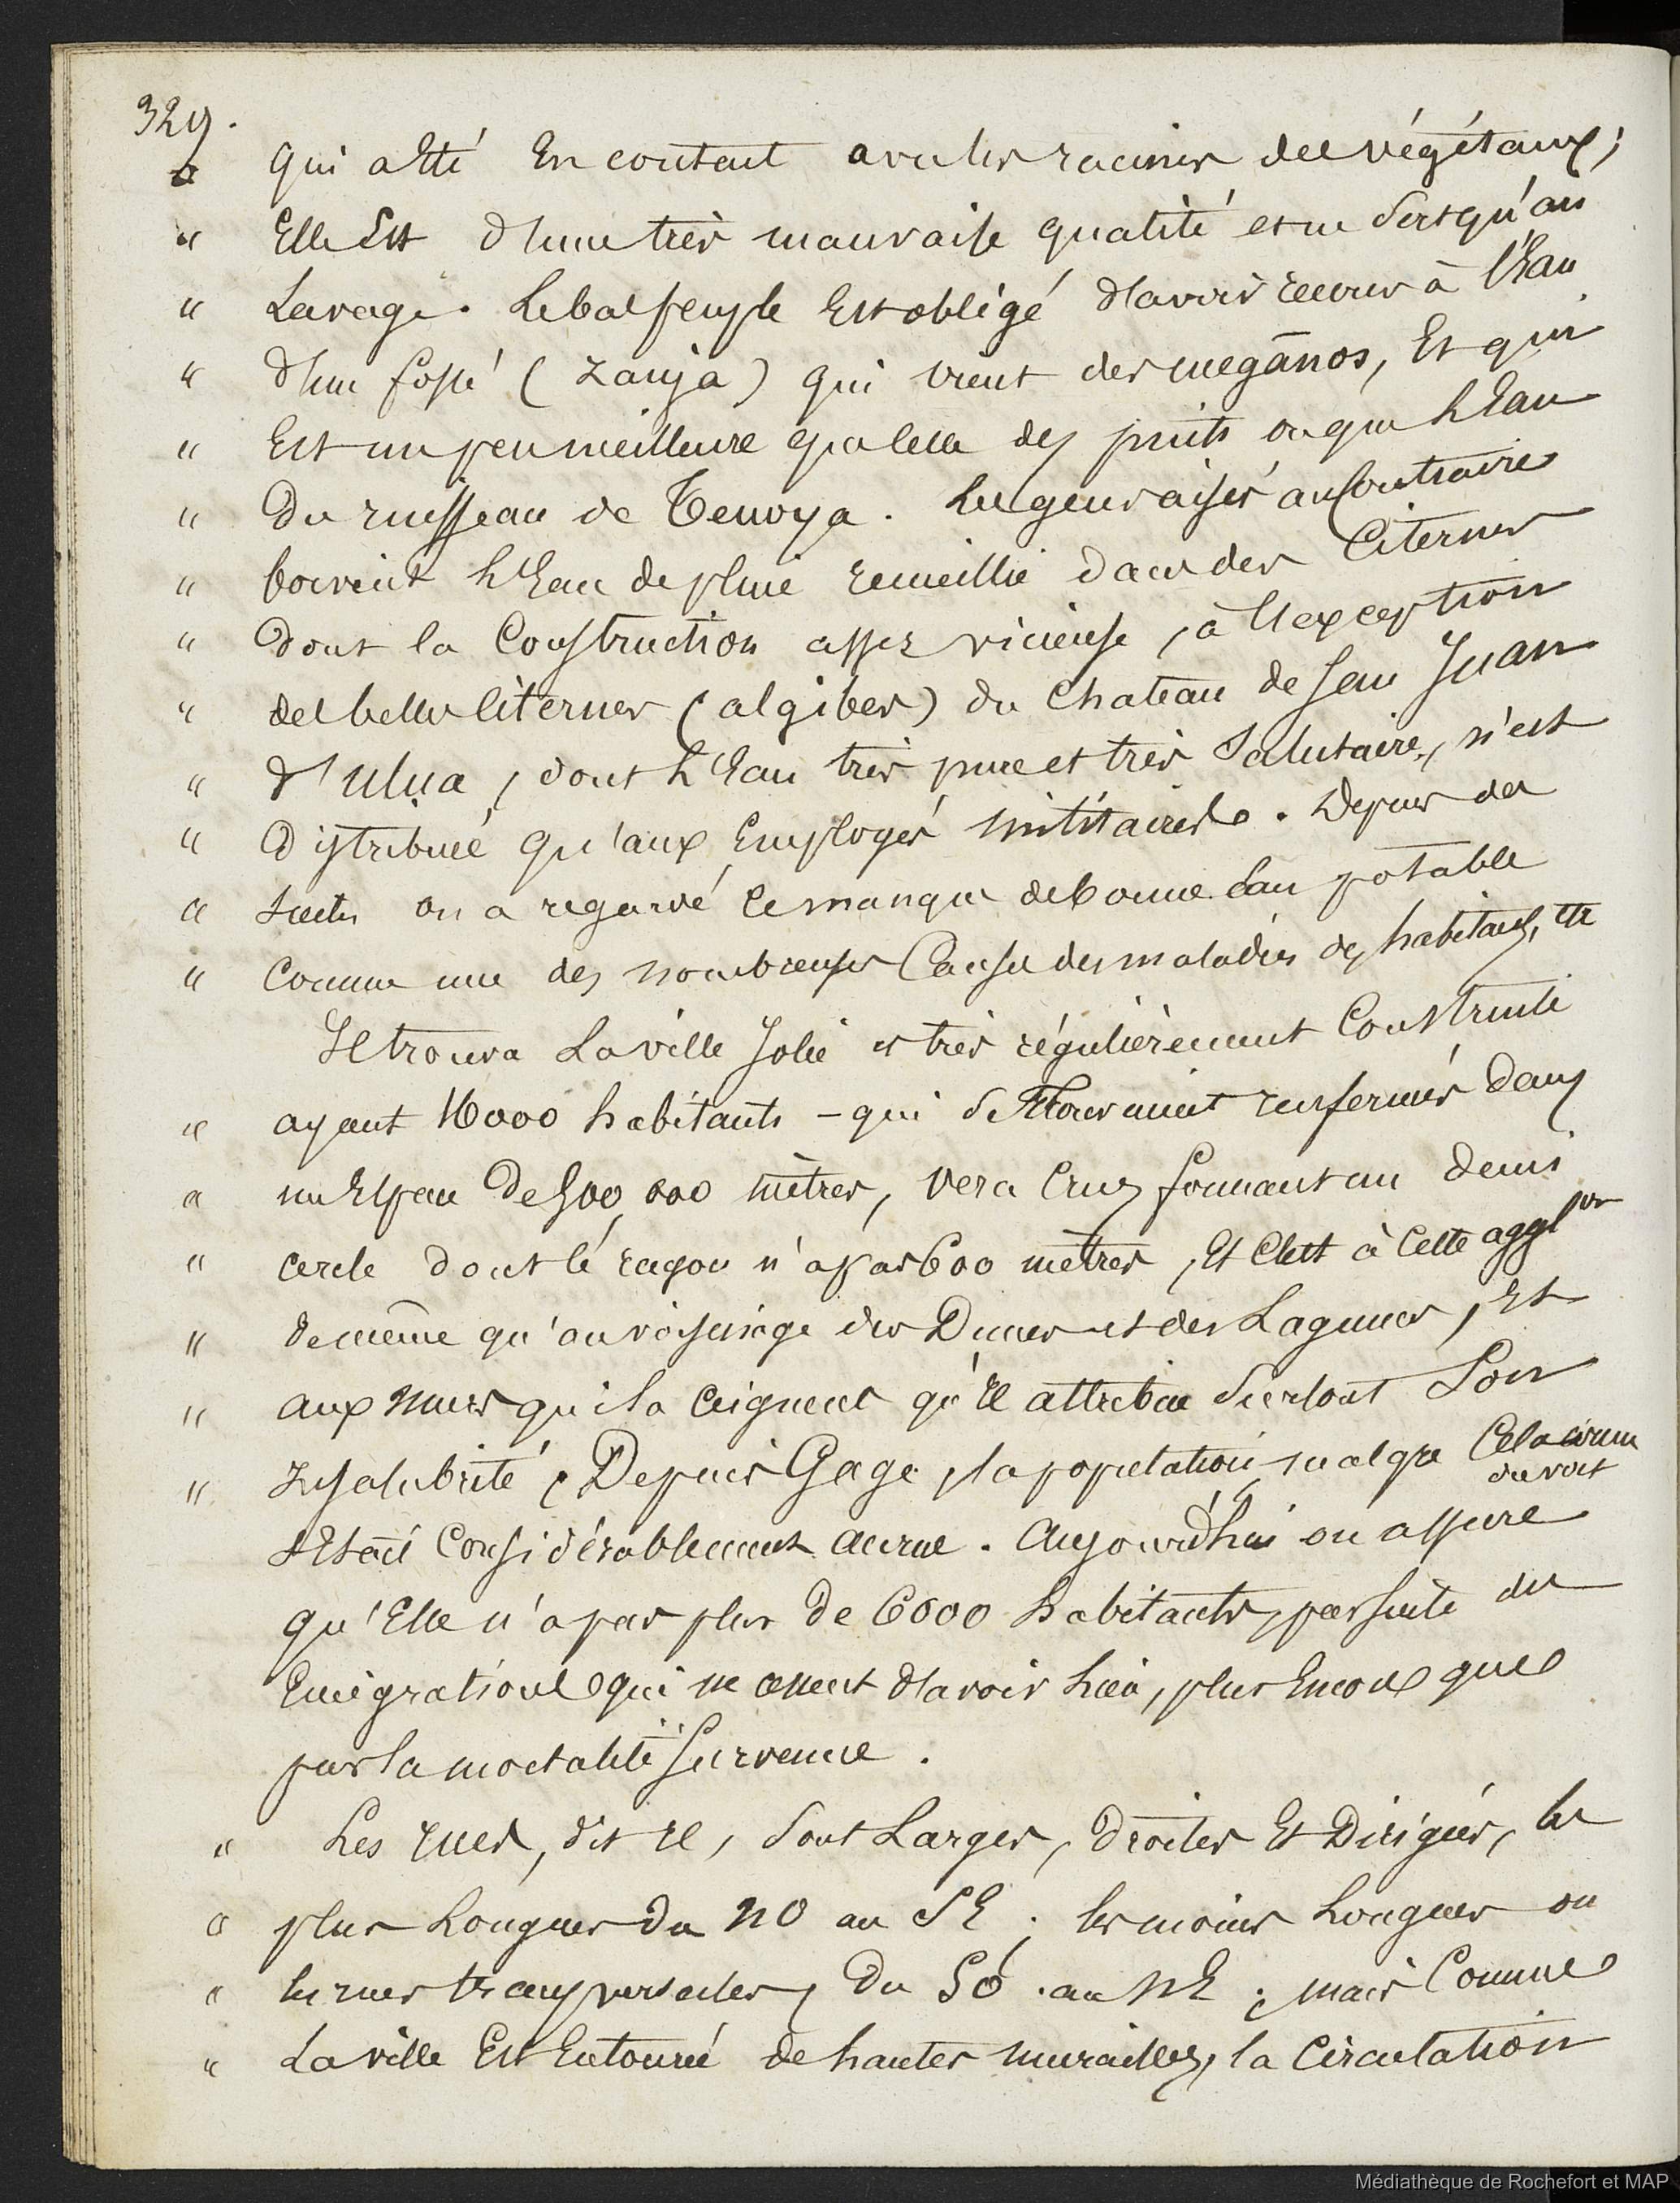 329.
" qui a été En contact avec les racines des végétaux;
" Elle Est d'une très mauvaise qualité et ne sert qu'au
" Lavage. Le bas peuple Est obligé d'avoir recours à l'Eau
" d'un fossé (zanja) qui vient des meganos, Et qui
" Est un peu meilleure que celle des puits ou que l'Eau
" du ruisseau de Tenoya. Les gens aisés au Contraire
" boivent l'Eau de pluie recueillie dans des Citernes
" dont la Construction assez vicieuse, à l'exception
" des belles Citernes (algibes) du Chateau de San Juan
" d'Ulua, dont l'Eau très pure et très Salutaire, n'est
" Distribuée qu'aux Employés militaires. Depuis des
" siècles on a regardé le manque de bonne Eau potable
" Comme une des nombreuses Causes des maladies des habitans, etc
Il trouva La ville Jolie et très régulièrement Construite
" ayant 16000 habitants – qui se trouvaient renfermés Dans
" un Espace De 500,000 mètres, Vera Cruz formant un demi
" cercle dont le rayon n'a pas 600 mètres, Et C'est à Cette agglon
" de même qu'au voisinage des Dunes et des Lagunes, Et
" aux murs qui la Ceignent qu'il attribue Surtout Son
" Insalubrité. Depuis Gage, la population, malgré Cela
devait
s'Etait Considérablement accrue. Aujourd'hui on assure
qu'Elle n'a pas plus de 6000 habitants, par suite des
Emigrations qui ne cessent d'avoir lieu, plus Encore que
par la mortalité Survenue.
" Les rues, dit il, Sont Larges, Droites Et Dirigées, les
" plus Longues du NO au SE; les moins Longues ou
" les rues transversales, Du SO. au NE; mais Comme
" La ville Est Entourée de hautes murailles, la Circulation
Médiathèque de Rochefort et MAP